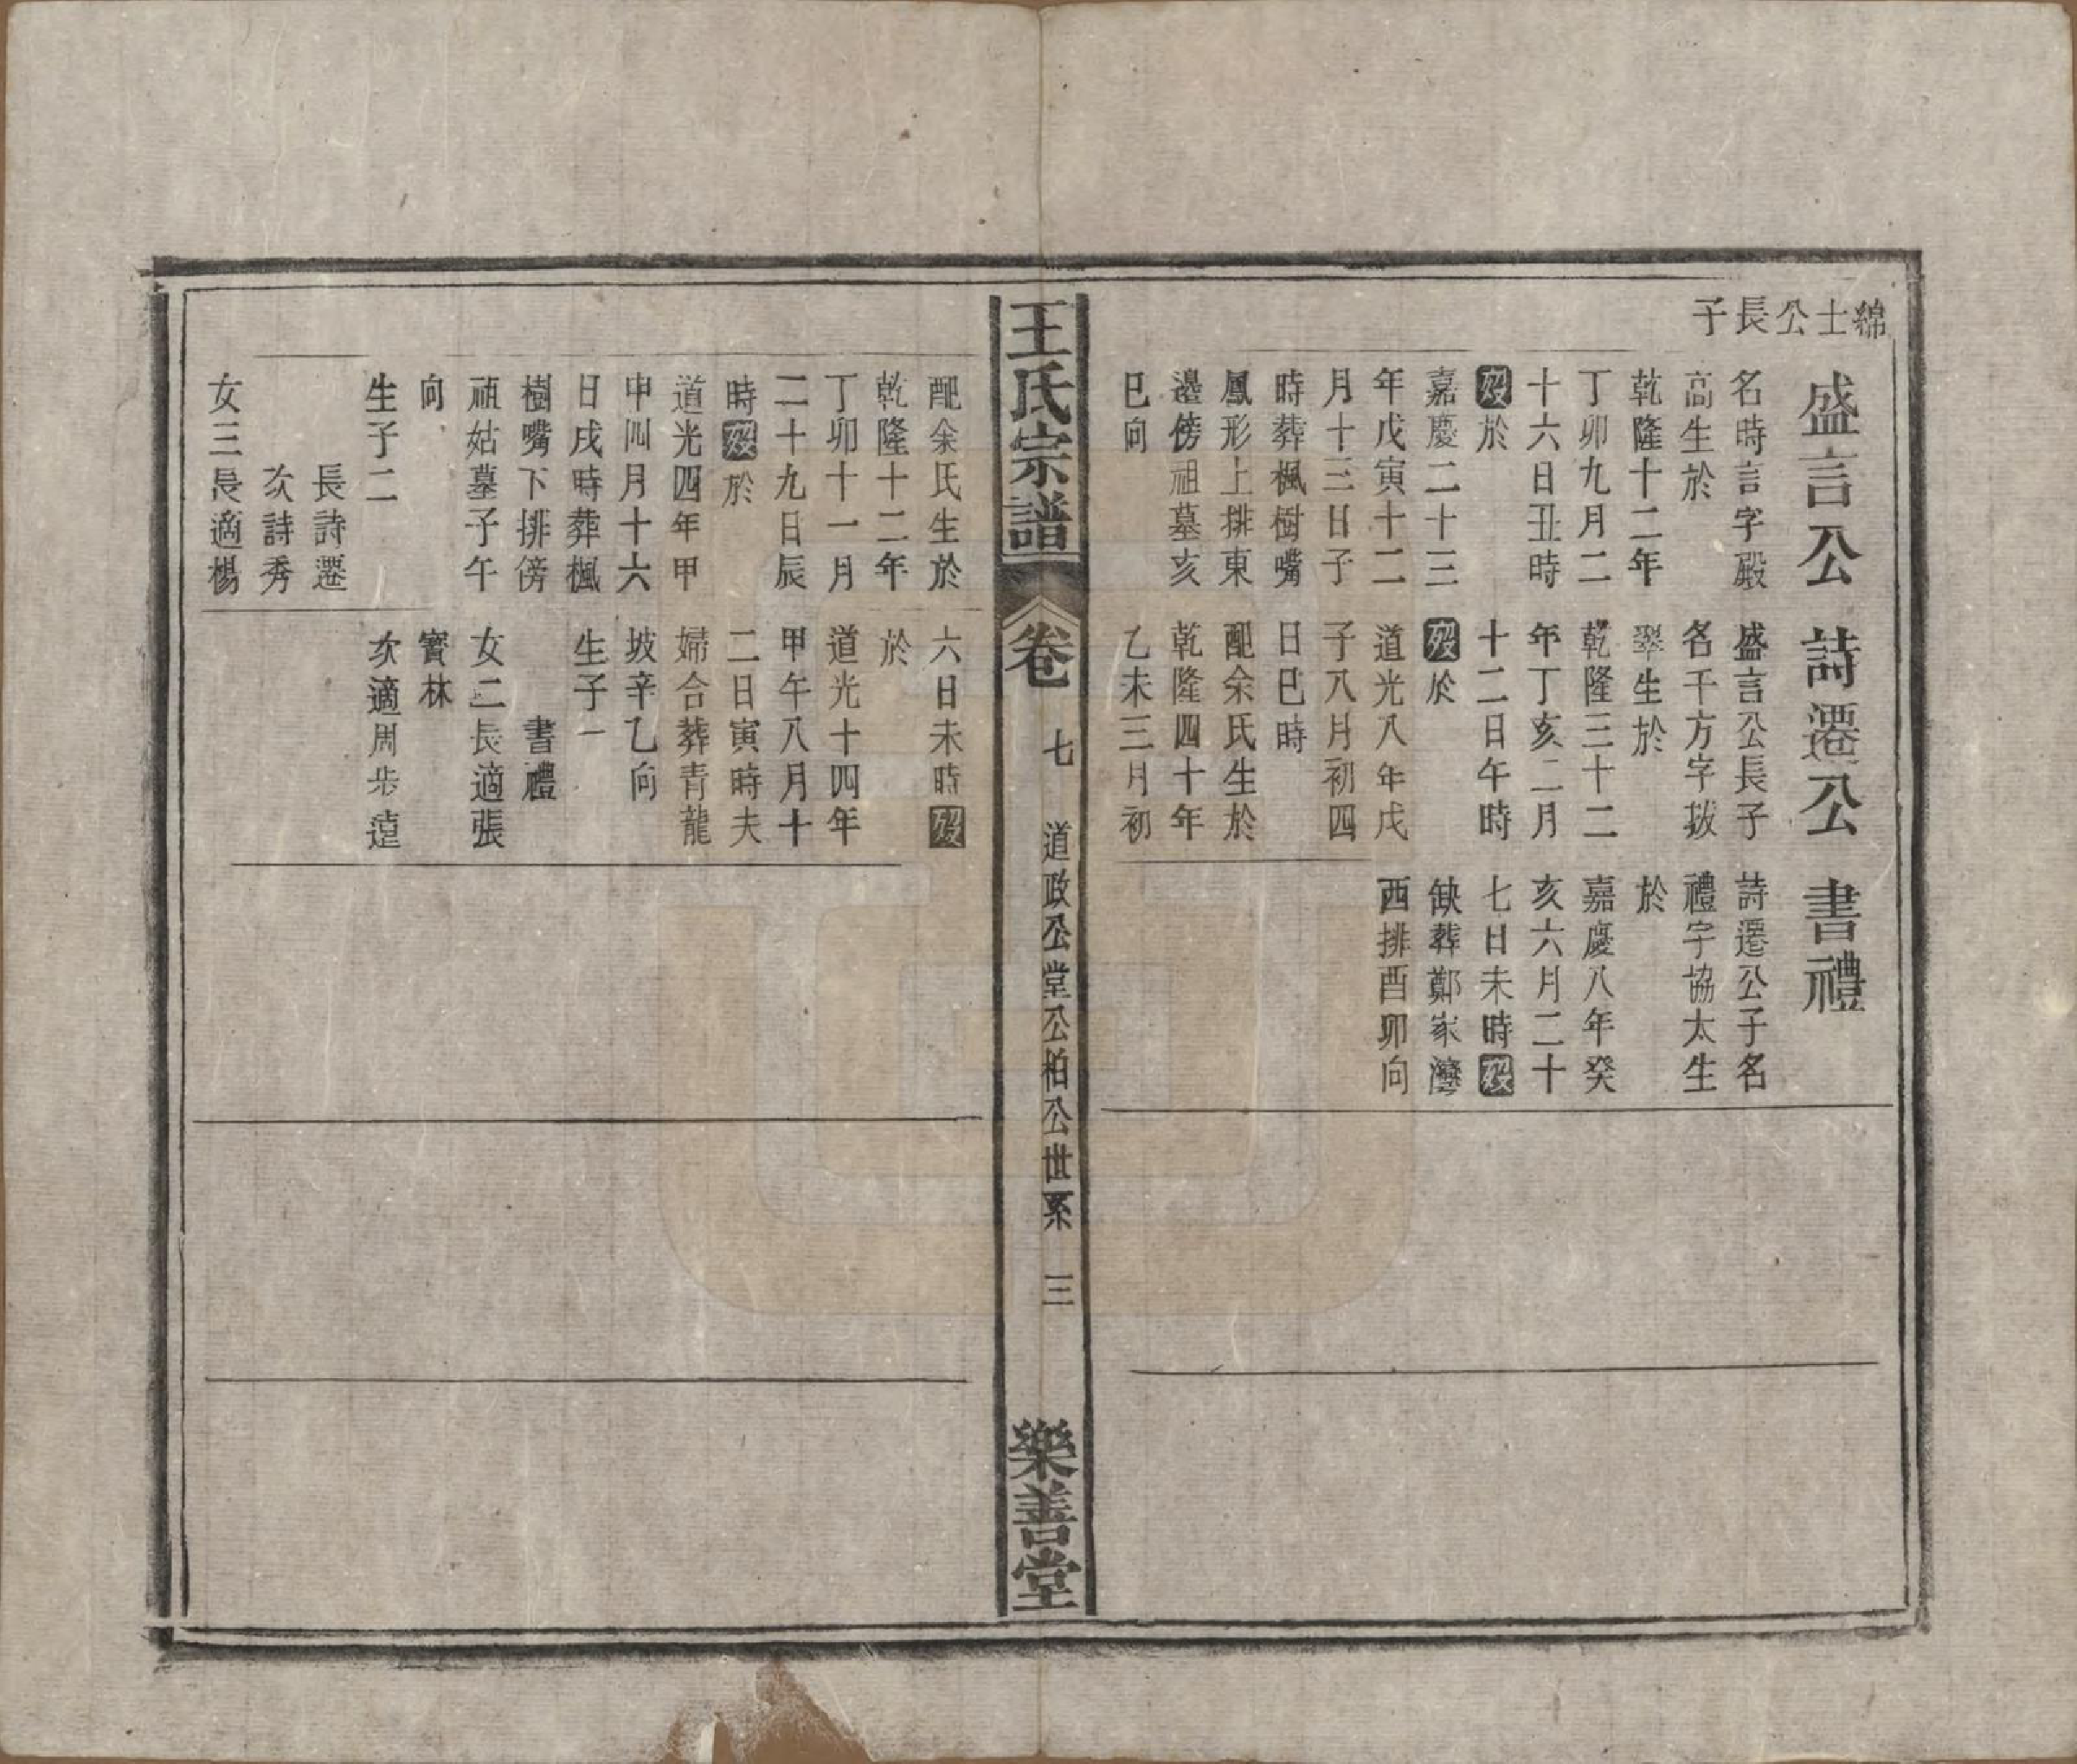 綿士公長子
盛言公
名時言字殿
高生於
乾隆十二年
丁卯九月二
十六日丑時
歿於
嘉慶二十三
年戊寅十二
月十三日子
時葬楓樹嘴
鳳形上排東
邊傍祖墓亥
巳向
詩遷公
盛言公長子
名千方字拔
翠生於
乾隆三十二
年丁亥二月
十二日午時
歿於
道光八年戊
子八月初四
日巳時
配余氏生於
乾隆四十年
乙未三月初
書禮
詩遷公子名
禮字協太生
於
嘉慶八年癸
亥六月二十
七日未時歿
缺葬鄭家灣
西排酉卯向
王氏宗譜
卷七
道政公堂公柏公世系
三
樂善堂
配余氏生於
乾隆十二年
丁卯十一月
二十九日辰
時歿於
道光四年甲
申四月十六
日戌時葬楓
樹嘴下排傍
祖姑墓子午
向
生子二
長詩遷
次詩秀
女三長適楊
六日未時歿
於
道光十四年
甲午八月十
二日寅時夫
婦合葬青龍
坡辛乙向
生子一
書禮
女二長適張
寳林
次適周步遠